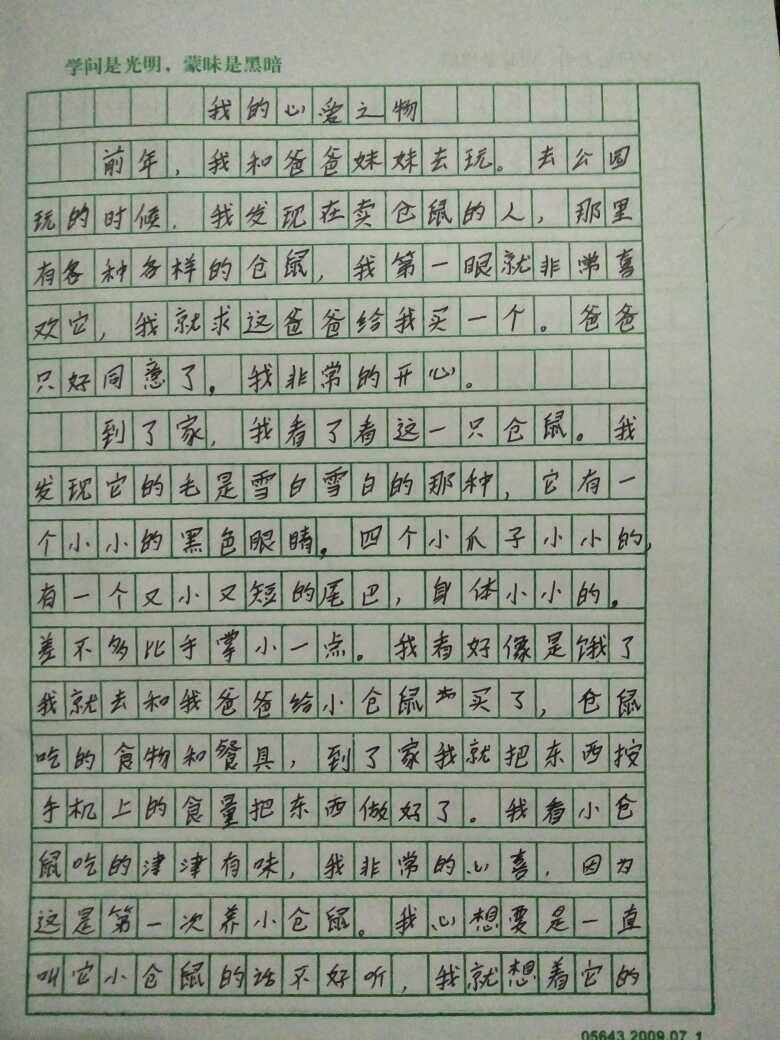 学问是光明，蒙昧是黑暗
我的心爱之物
前年，我和爸爸妹妹去玩。去公园
玩的时候，我发现在卖仓鼠的人，那里
有各种各样的仓鼠，我第一眼就非常喜
欢它，我就求这爸爸给我买一个。爸爸
只好同意了。我非常的开心。
到了家，我看了看这一只仓鼠。我
发现它的毛是雪白雪白的那种，它有一
个小小的黑色眼睛。四个小爪子小小的，
有一个又小又短的尾巴，身体小小的。
差不多比手掌小一点。我看好像是饿了
我就去和我爸爸给小仓鼠买了，仓鼠
吃的食物和餐具，到了家我就把东西按
手机上的食量把东西做好了。我看小仓
鼠吃的津津有味，我非常的心喜，因为
这是第一次养小仓鼠。我心想要是一直
叫它小仓鼠的话不好听，我就想着它的
05643.2009.07.1